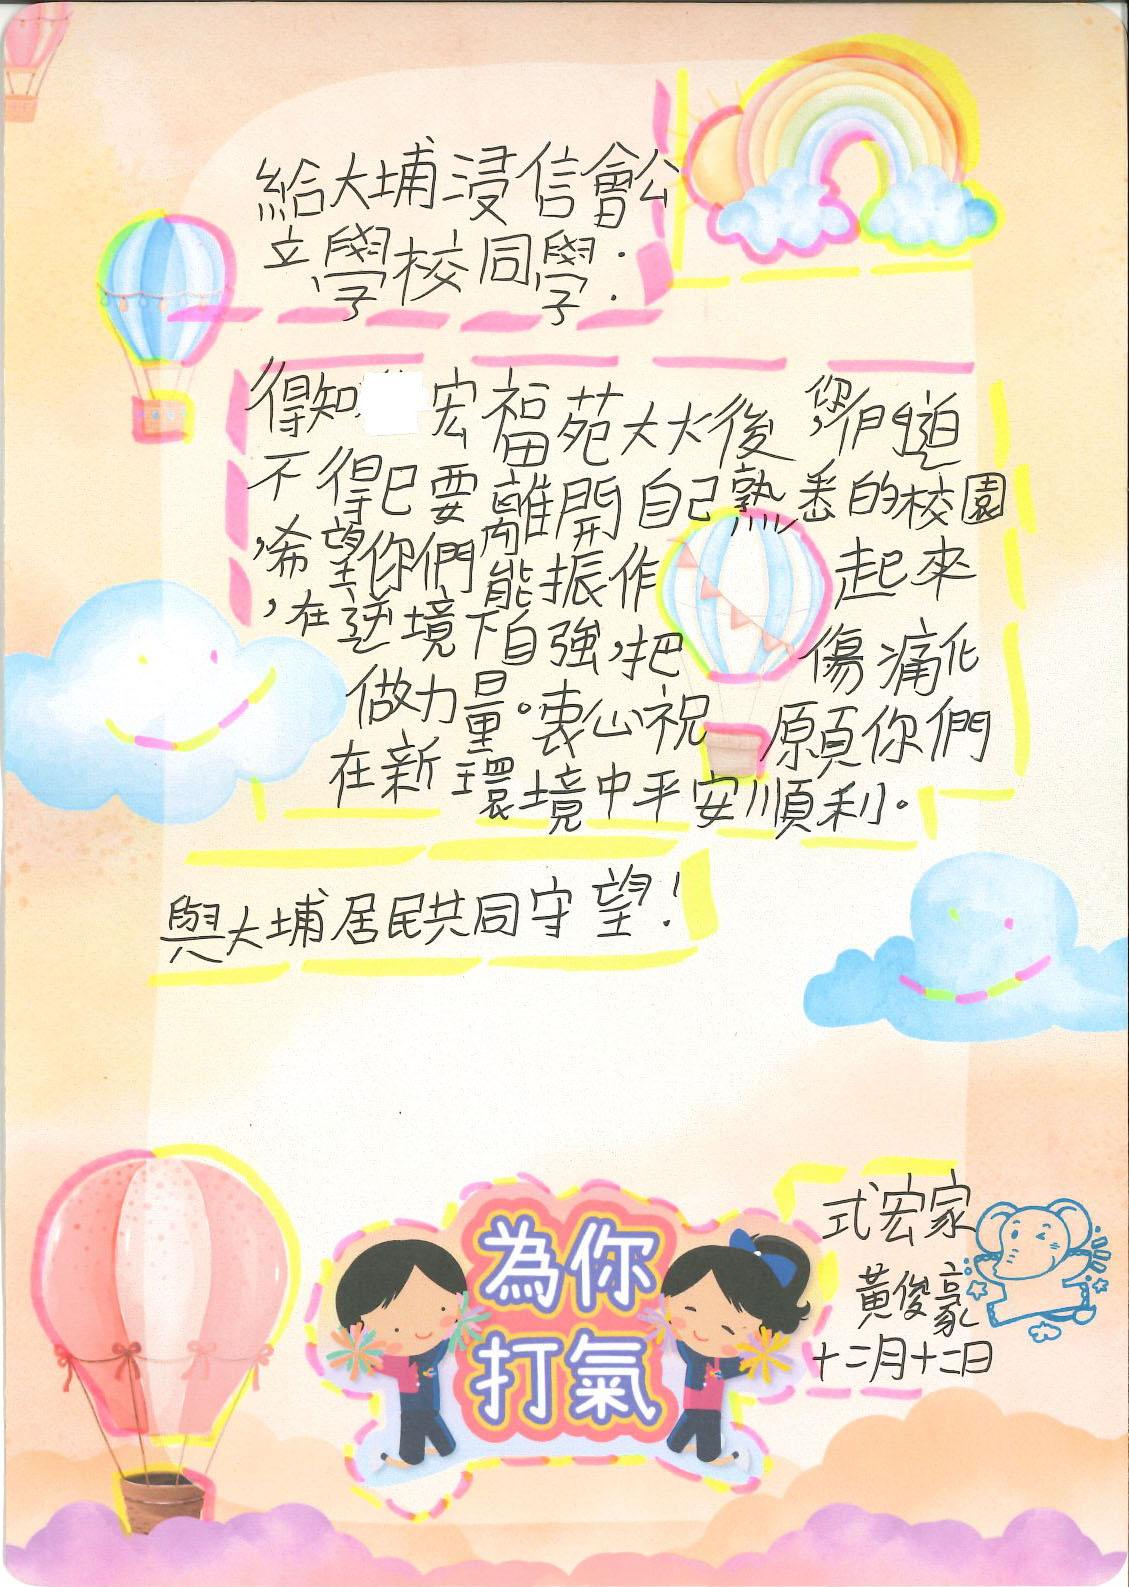 給大埔浸信會公
立學校同學：
得知 宏福苑大火後，你們迫
不得已要離開自己熟悉的校園
，希望你們能振作起來
，在逆境下自強，把傷痛化
做力量。衷心祝願你們
在新環境中平安順利。
與大埔居民共同守望！
為你
打氣
式宏家
黃俊豪
十二月十二日